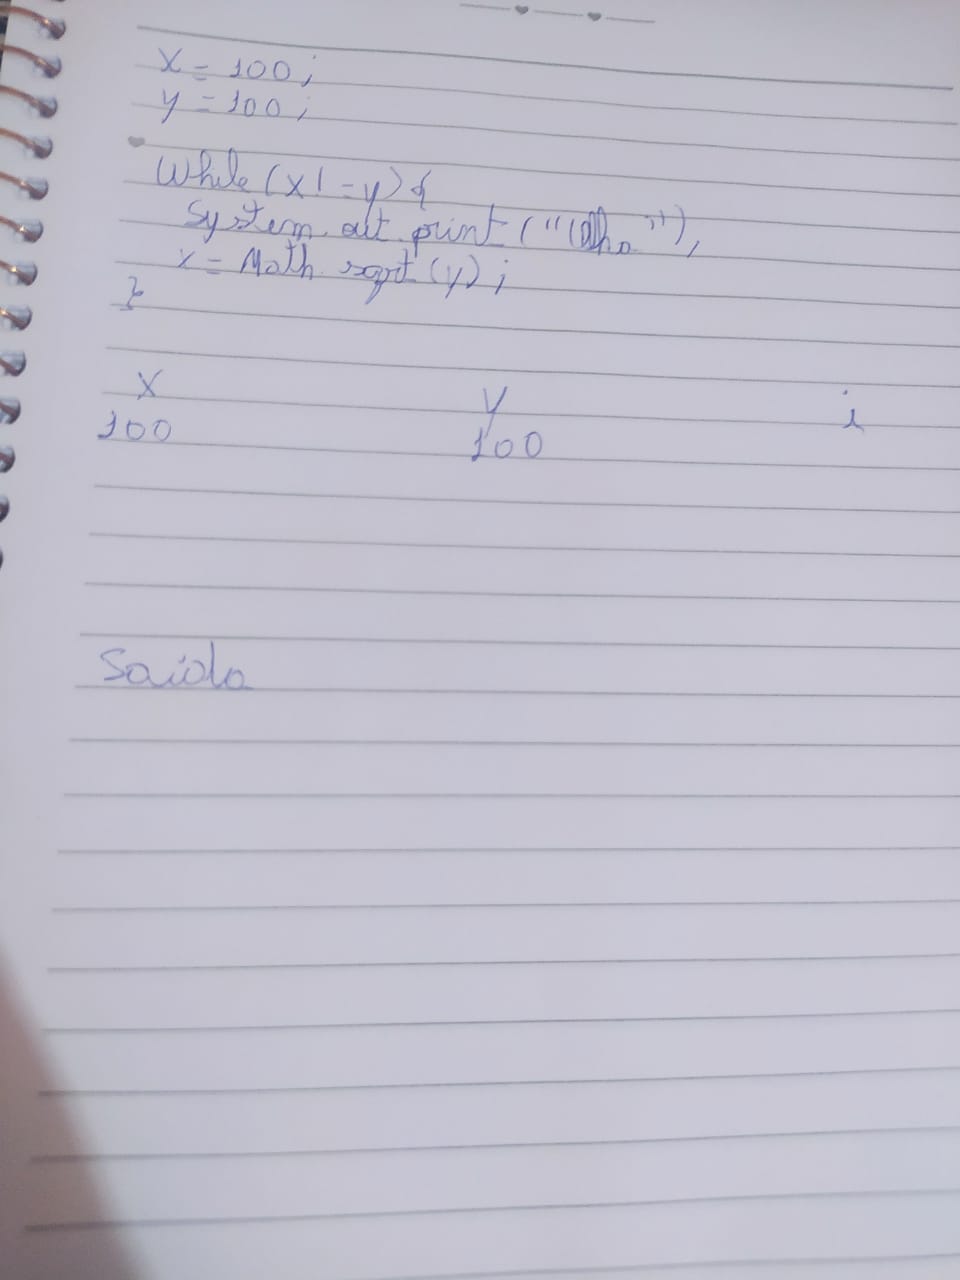 X = 100;
y = 100;
While (x! = y) {
System. out. print ("Olho"),
x = Math sqrt (y);
}
X Y i
100 100
Saida